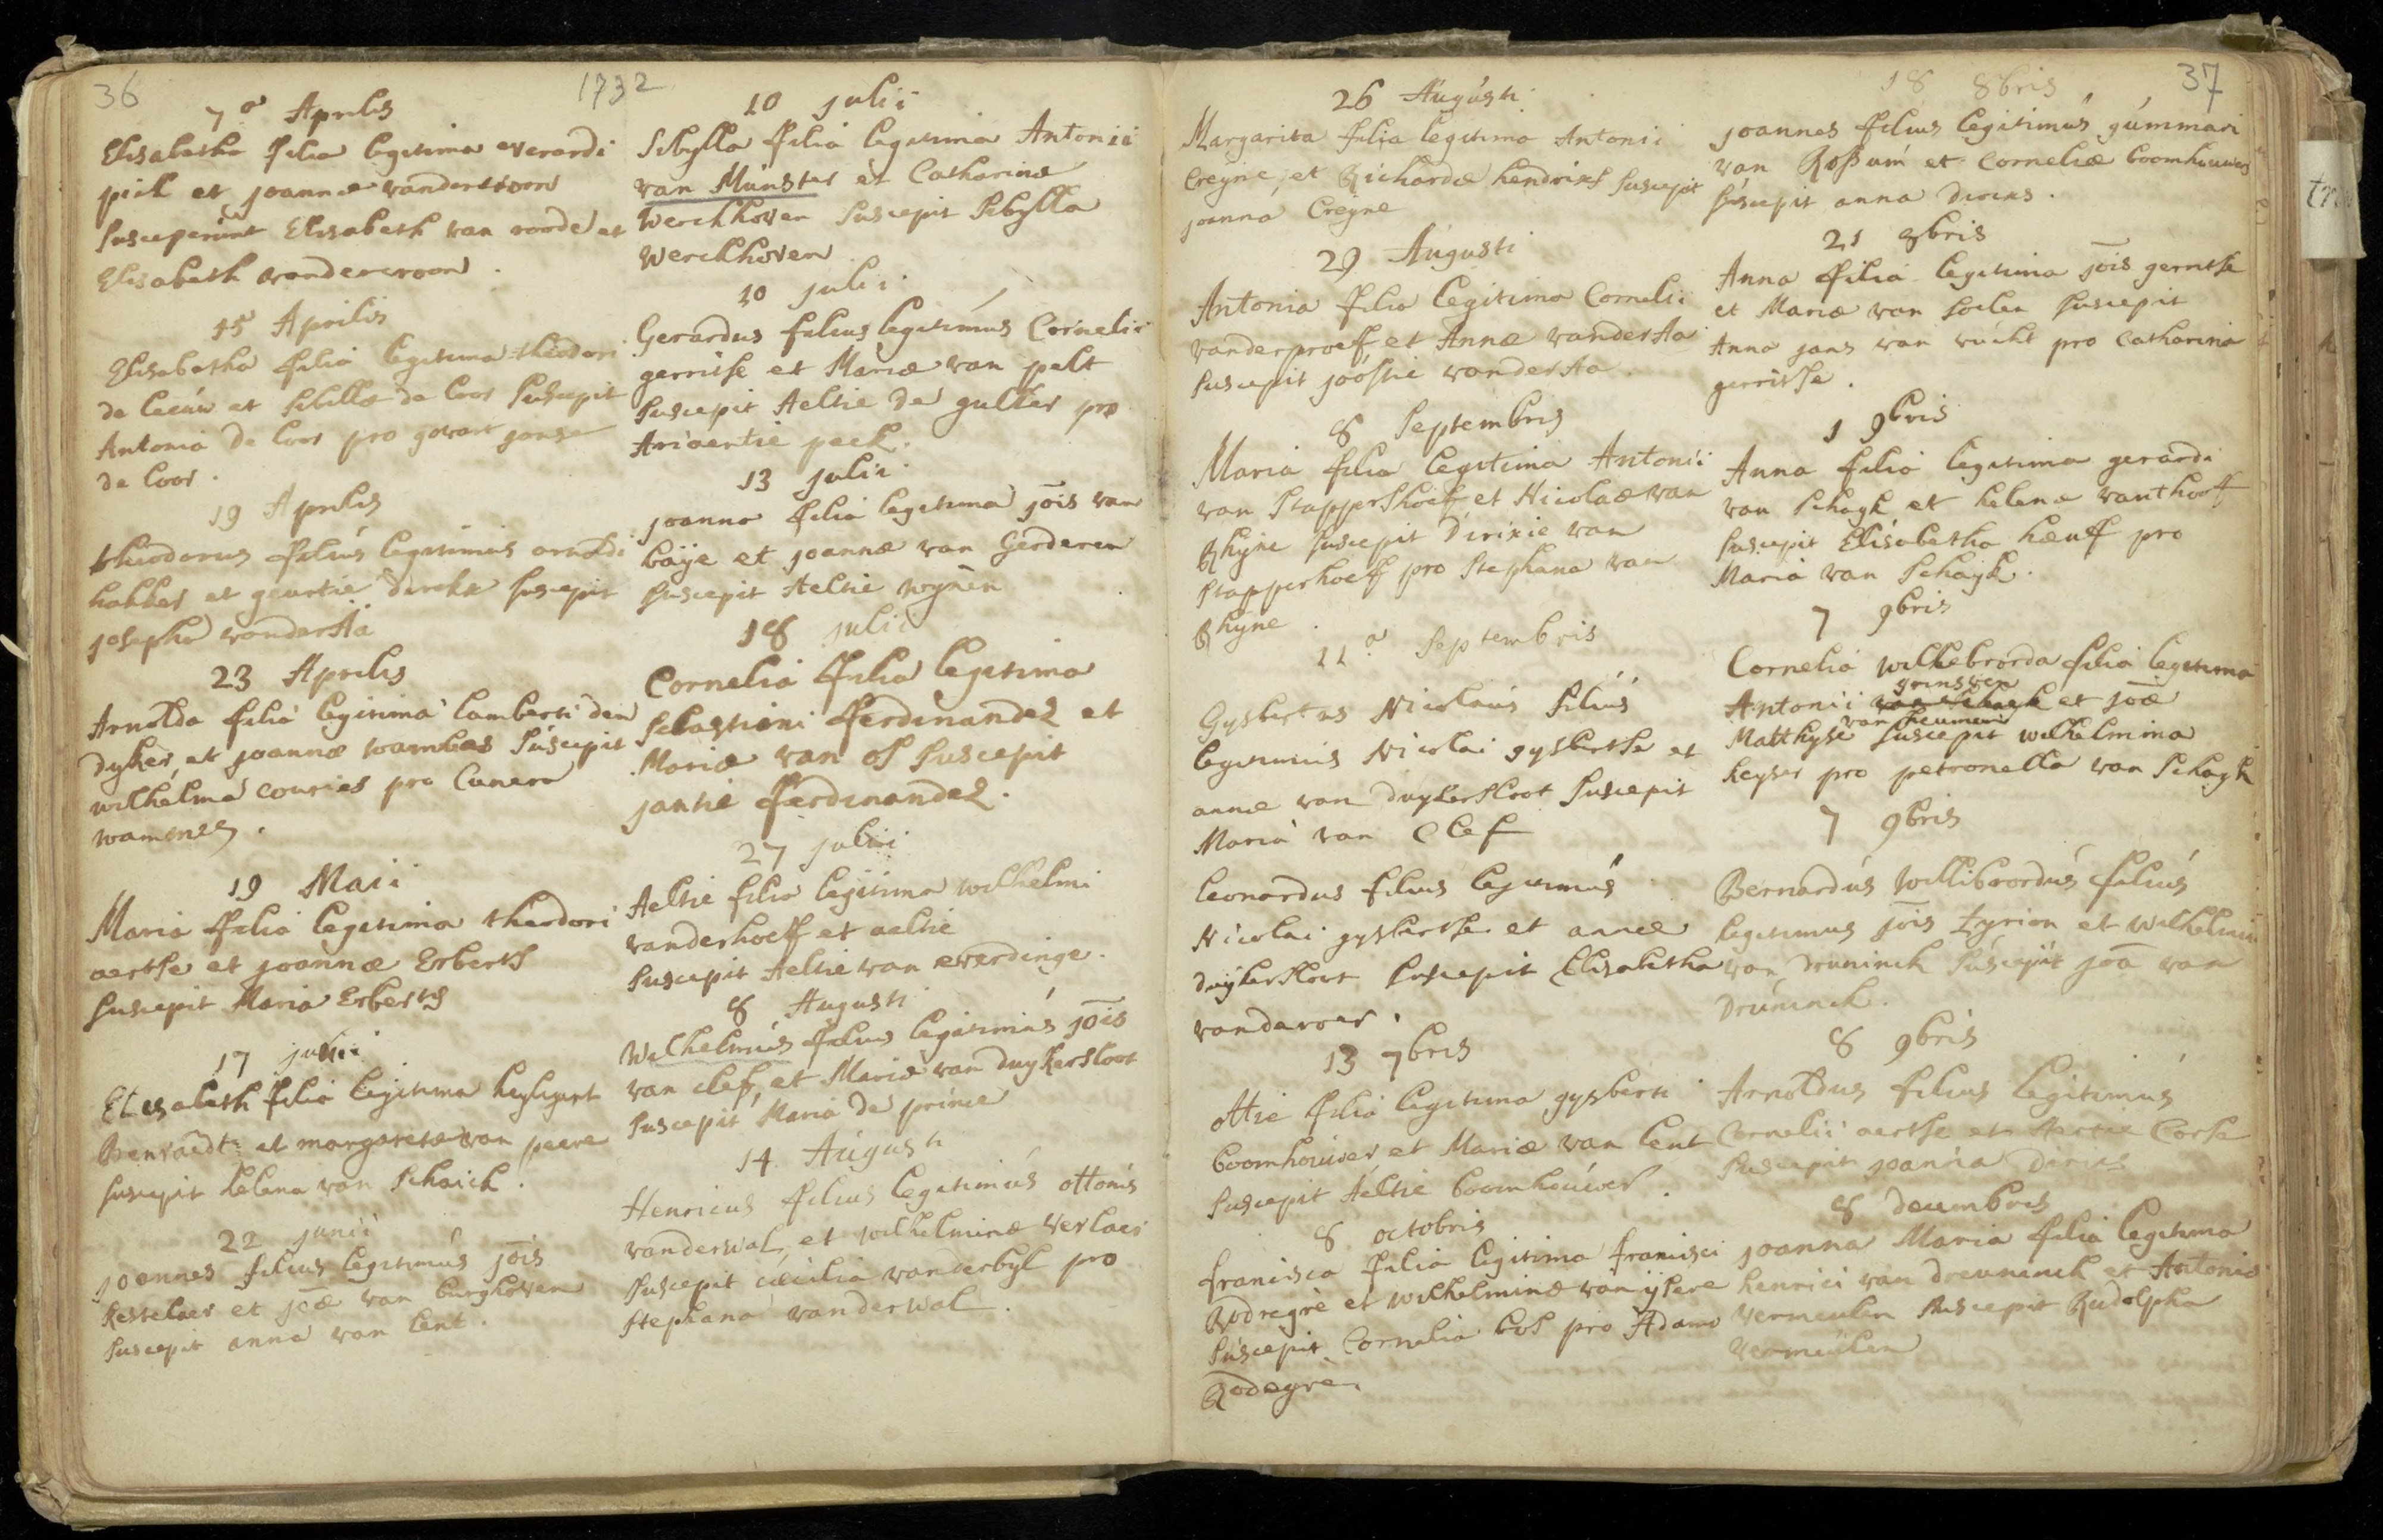 36
1732
7a Aprilis
Elisabetha filia legitima everardi
pick et joannæ vandercroon
susceperunt Elisabeth van roode et
Elisabeth vandercroon.
15 Aprilis
Elisabetha filia legitima theodori
de leeuw et sibillæ de loor suscepit
Antonia de loor pro govart janse
de loor.
19 Aprilis
theodorus filius legitimus arnoldi
hakker et geurtie dirckx suscepit
josepha vanderAa
23 Aprilis
Arnolda filia legitima lamberti den
dyker, et joannæ wambes suscepit
wilhelma couries pro Cunera
19 Maii
Maria filia legitima theodori
aertse et joannæ Erberts
suscepit Maria Erberts
17 junii
Elisabeth filia legitima heyligert
Benraedt et margaretæ van peere
suscepit helena van Schaick.
22 junii
joannes filius legitimus jōis
kestelaer et jōæ van burghoven
suscepit anna van lent.
10 julii
Sibylla filia legitima Antonii
van Munster et Catharinæ
Werckhoven suscepit Sibylla
Werckhoven
10 julii
Gerardus filius legitimus Cornelii
gerritse et Mariæ van pelt
suscepit Aeltie de gulker pro
Ariaentie peck.
13 julii
joanna filia legitima jōis van
baÿe et joannæ van Gerderen
suscepit Aeltie wynen
18 julii
Cornelia filia legitima
Sebastiani Ferdinandez et
Mariæ van os suscepit
jantie Ferdinandez.
27 julii
Aeltie filia legitima wilhelmi
vanderhoeff et aeltie
suscepit Aeltie van everdinge.
8 Augusti
Wilhelmus filius legitimus jōis
van clef, et Mariæ van duykersloot
suscepit Maria de prince
14 Augusti
Henricus filius legitimus ottonis
vanderwal, et wilhelminæ Verlaer
suscepit cæcilia vanderbyl pro
stephana vanderwal.
37
26 Augusti
Margarita filia legitima Antonii
Creyne, et Richardæ hendrixs suscepit
joanna Creyne
29 Augusti
Antonia filia legitima Cornelii
vanderproeff et Annæ vanderAa
suscepit joostie vanderAa.
8 Septembris
Maria filia legitima Antonii
van Stappershoeff et Nicolaæ van
Rhyne suscepit Dirixie van
Stapperhoeff pro Stephana van
Rhyne.
11a Septembris
Gysbertus Nicolaus filius
legitimus Nicolai gysbertse et
annæ van duykersloot suscepit
Maria van Clef
leonardus filius legitimus
Nicolai gysbertse et annæ
duykersloot suscepit Elisabetha
vanderoer.
13 7bris
ottie filia legitima gysberti
boomhouwer et Mariæ van lent
suscepit Aeltie boomhouwer.
8 octobris
francisca filia legitima francisci
Rodregre et wilhelminæ van ysere
suscepit Cornelia bos pro Adamo
Rodegre.
18 8bris
joannes filius legitimus gummari
van Rossum et Corneliæ boomhouwer
suscepit anna dircks.
21 8bris
Anna filia legitima jōis gerritse
et Mariæ van soelen suscepit
Anna jans van vucht pro Catharina
gerritse.
1 9bris
Anna filia legitima gerardi
van Schayk et helena vanthooff
suscepit Elisabetha hœuff pro
Maria van Schayk.
7 9bris
Cornelia wilhebrorda filia legitima
grinsven
Antonii van Schayk et jōæ
van heumen
Matthyse suscepit wilhelmina
keyser pro petronella van Schayk
7 9bris
Bernardus Willibrordus filius
legitimus jōis Tyrion et wilhelmin
van Druninck suscepit jōa van
Druninck.
8 9bris
Arnoldus filius legitimus
Cornelii aertse et Aertie Corse
suscepit joanna dirixs
8 decembris
joanna Maria filia legitima
henrici van dreuninck et Antoniæ
Vermeulen suscepit Rudolpha
Vermeulen